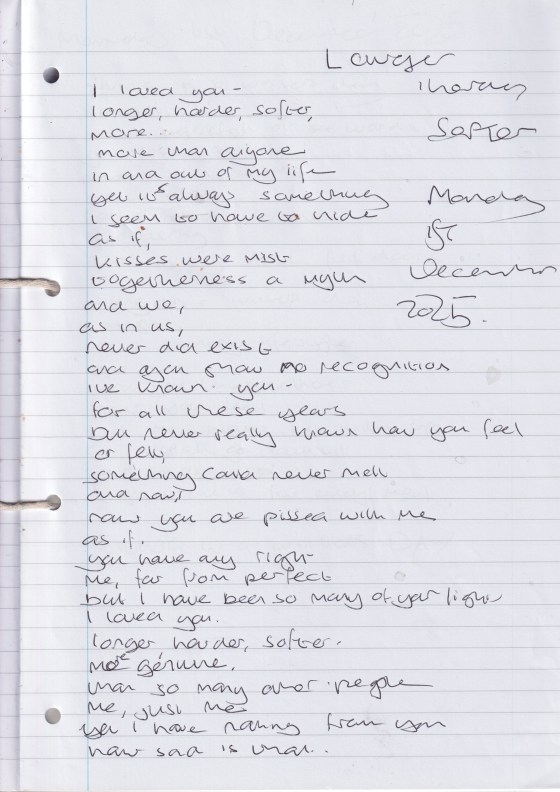 Longer
Harder
Softer
Monday
1st
December
2025.
I loved you -
longer, harder, softer,
more..
more than anyone
in and out of my life
yet it's always something
I seem to have to hide
as if,
kisses were mist
togetherness a myth
and we,
as in us,
never did exist
and you show no recognition
I've known. you -
for all these years
but never really known how you feel
or felt,
something could never melt
and now,
now you are pissed with me
as if.
you have any right
me, far from perfect
but I have been so many of your light
I loved you.
longer harder, softer.
more genuine.
than so many other people
me, just me
yet I have nothing from you
how sad is that..